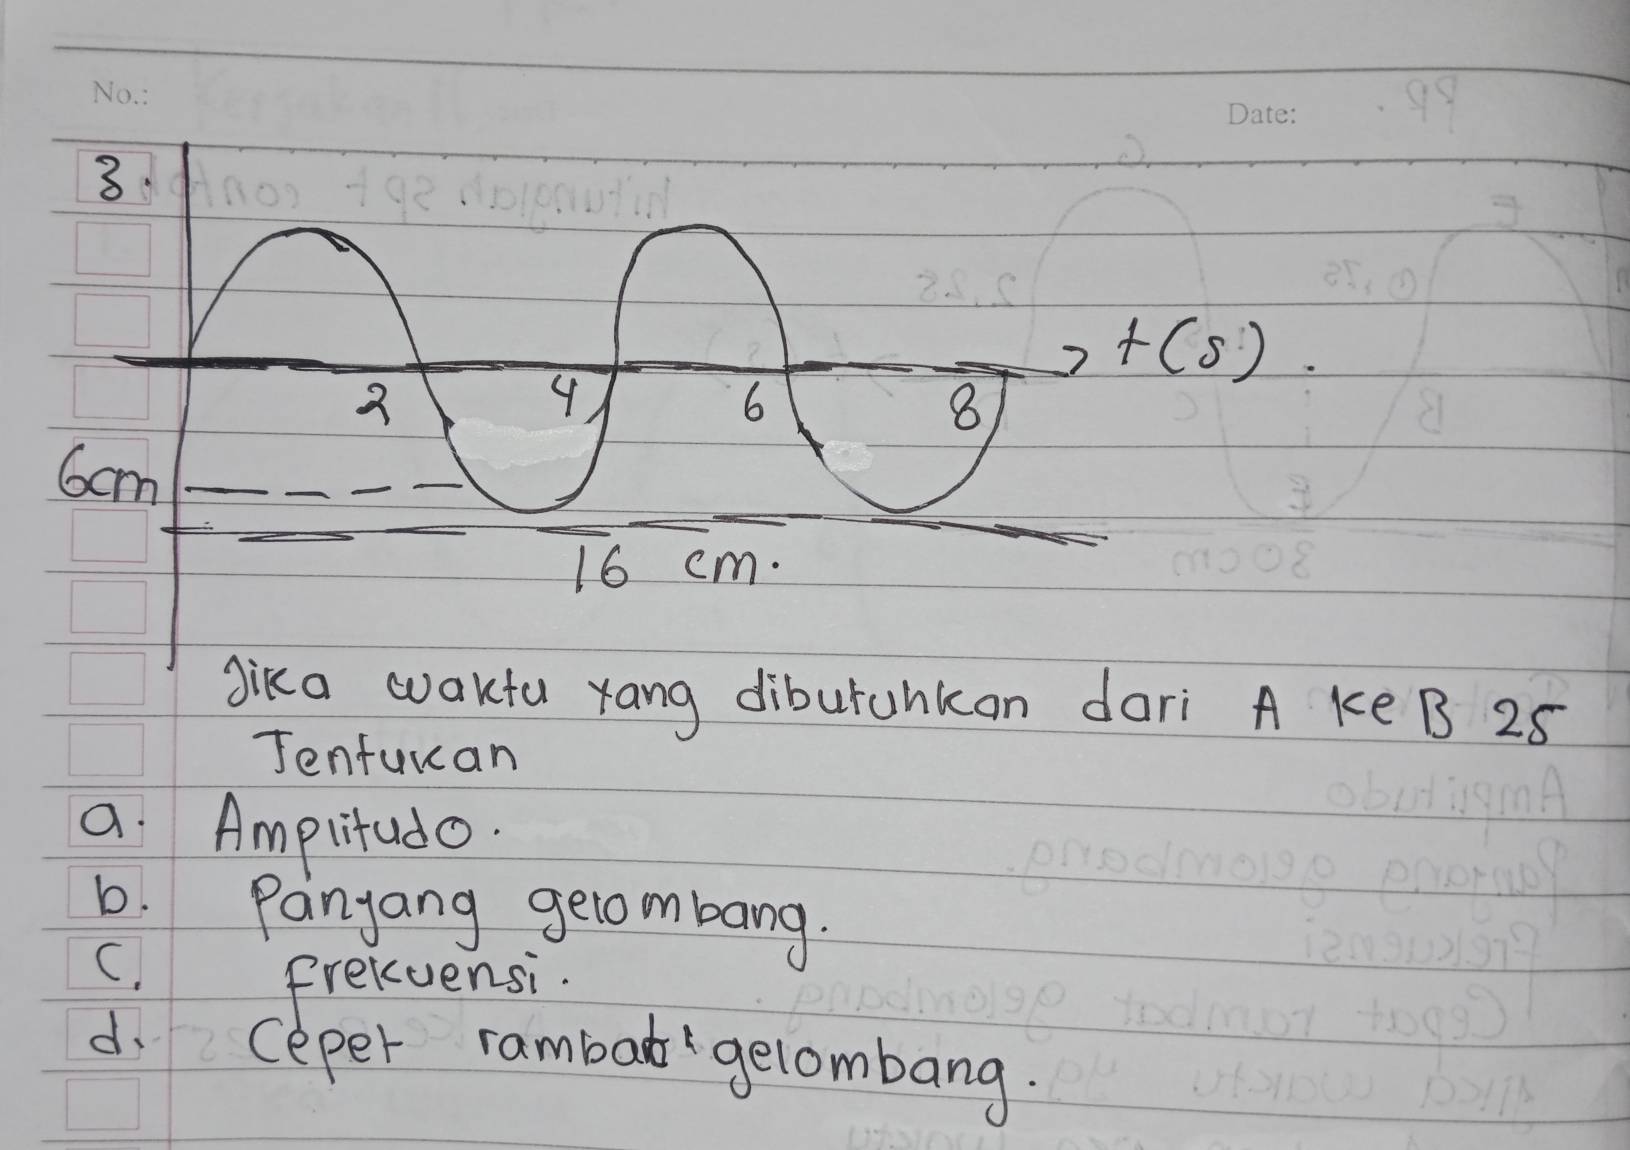 No.:
Date:
3.
t(s).
2 4 6 8
6cm
16 cm.
Jika waktu yang dibutuhkan dari A ke B 2s
Tentukan
a. Amplitudo.
b. Panyang gelombang.
c. frekuensi.
d. Cepet rambat gelombang.